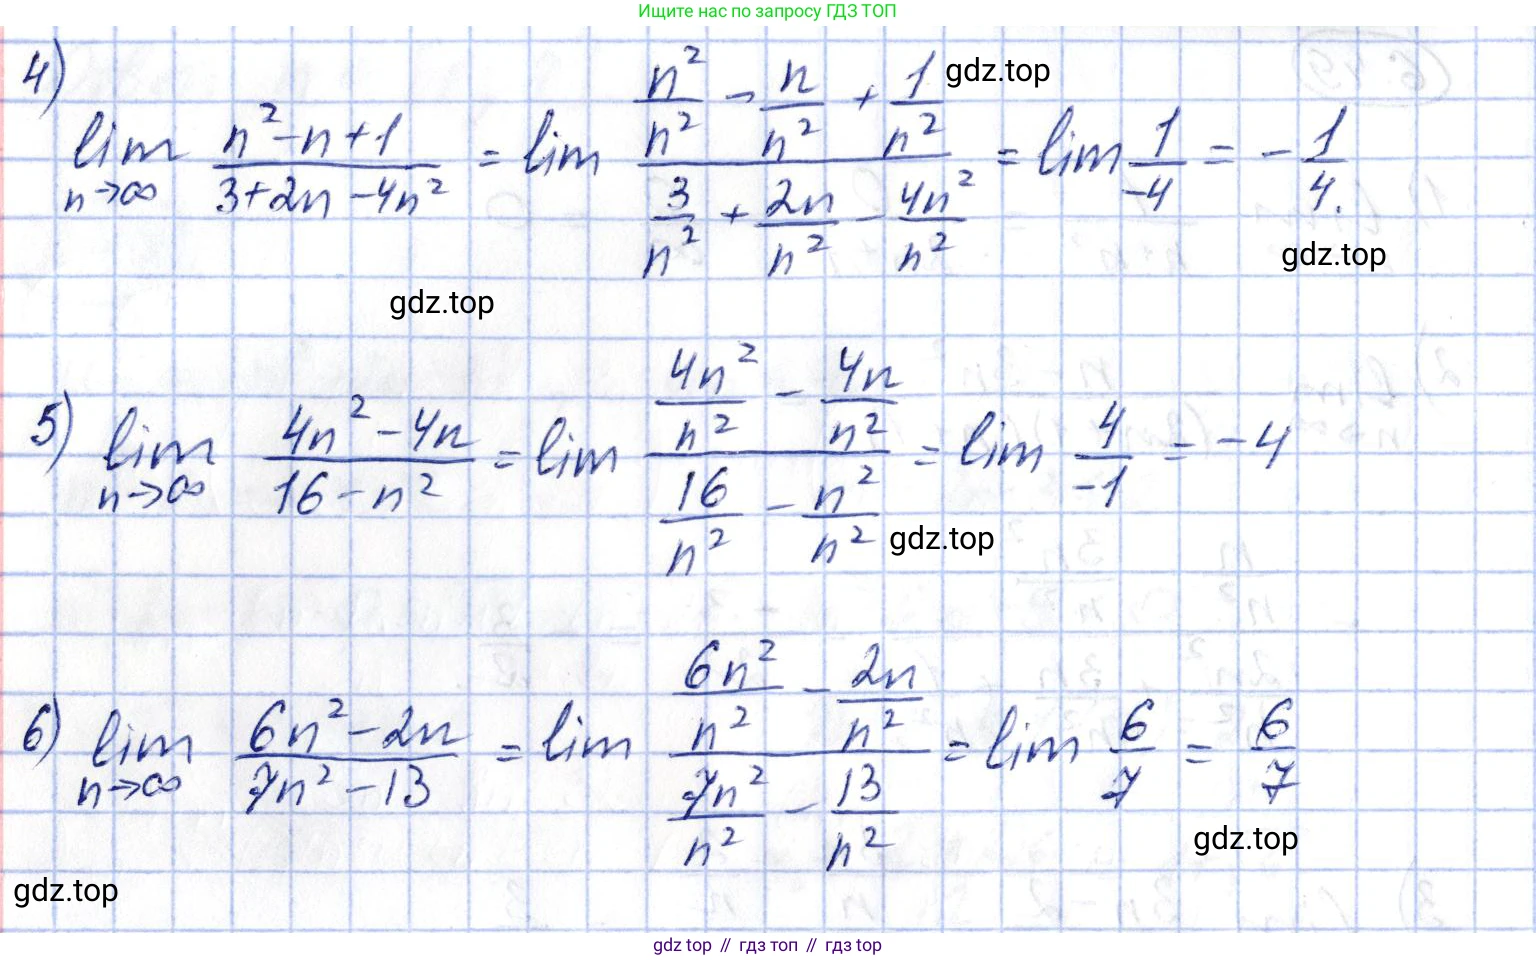 Ищите нас по запросу ГДЗ ТОП
4) lim n→∞ (n² - n + 1)/(3 + 2n - 4n²) = lim (n²/n² - n/n² + 1/n²)/(3/n² + 2n/n² - 4n²/n²) = lim 1/-4 = - 1/4.
gdz.top
gdz.top
gdz.top
5) lim n→∞ (4n² - 4n)/(16 - n²) = lim (4n²/n² - 4n/n²)/(16/n² - n²/n²) = lim 4/-1 = -4
gdz.top
6) lim n→∞ (6n² - 2n)/(7n² - 13) = lim (6n²/n² - 2n/n²)/(7n²/n² - 13/n²) = lim 6/7 = 6/7
gdz.top
gdz.top
gdz top // гдз топ // гдз top